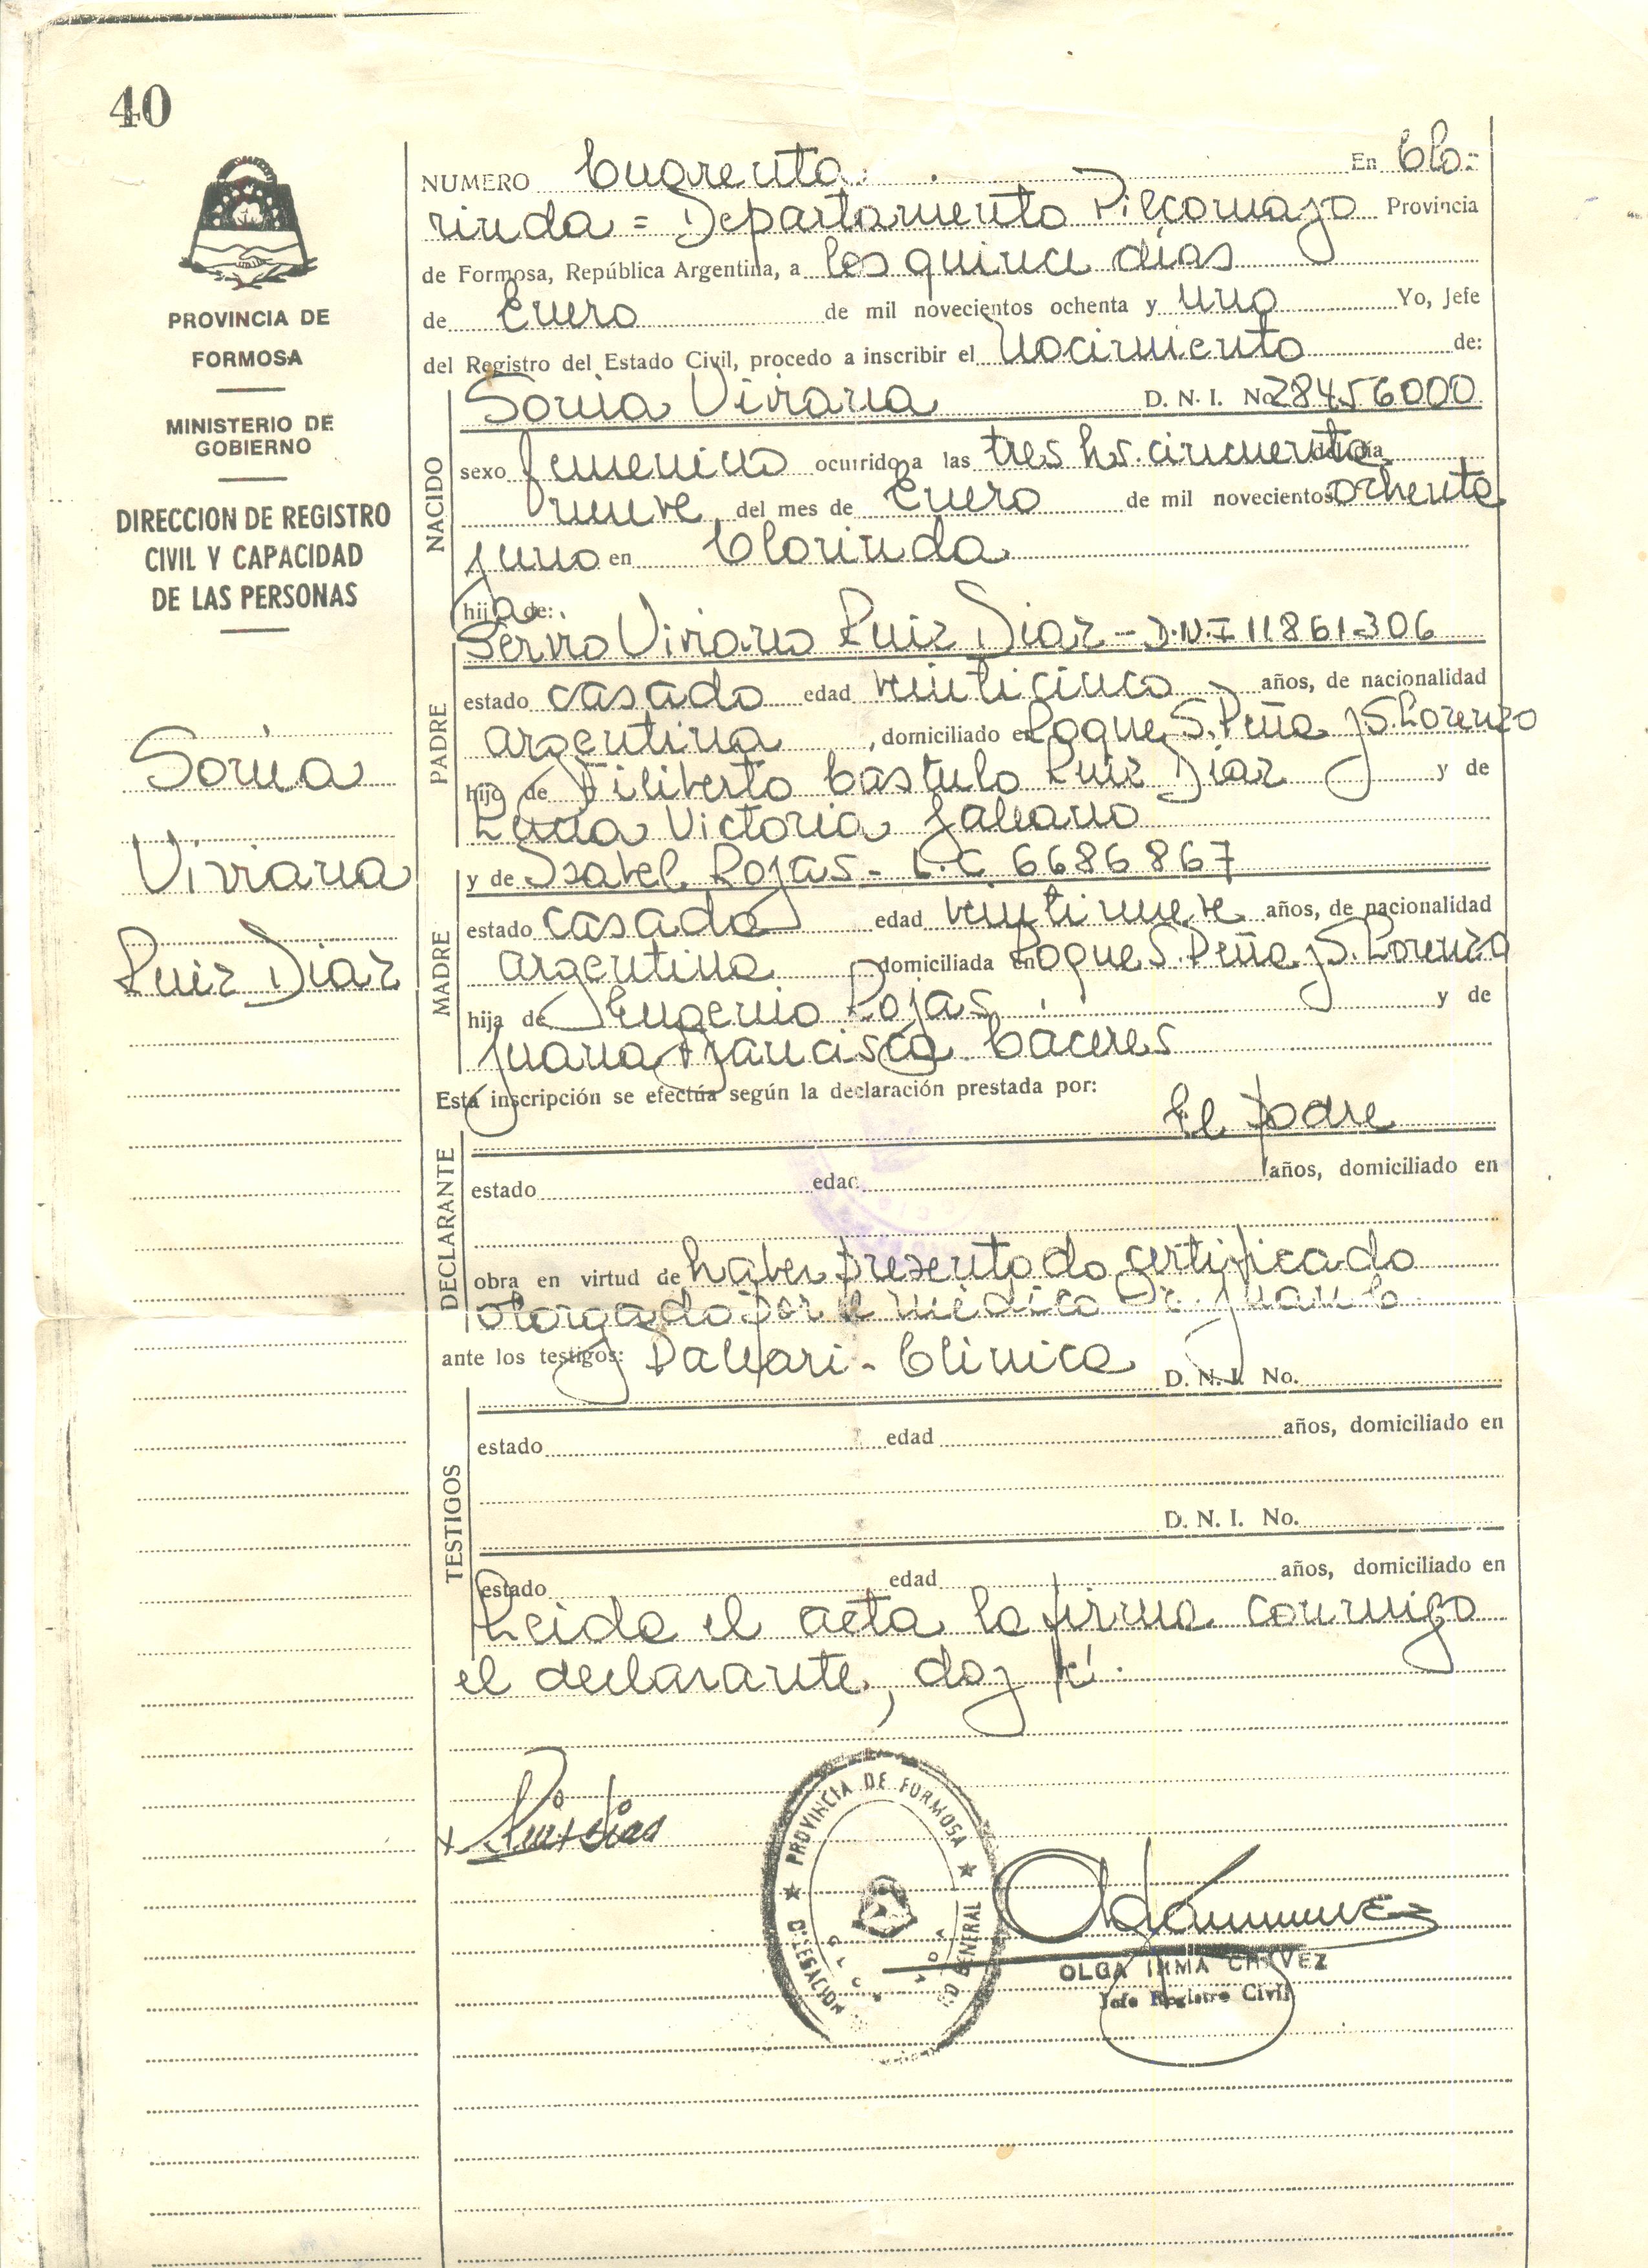 40
PROVINCIA DE
FORMOSA
MINISTERIO DE
GOBIERNO
DIRECCION DE REGISTRO
CIVIL Y CAPACIDAD
DE LAS PERSONAS
Sonia
Viviana
Ruiz Diaz
NUMERO Cuarenta. En Clo-
rinda = Departamento Pilcomayo Provincia
de Formosa, República Argentina, a los quince días
de Enero de mil novecientos ochenta y uno Yo, Jefe
del Registro del Estado Civil, procedo a inscribir el Nacimiento de:
NACIDO
Sonia Viviana D. N. I. No 28456000
sexo femenino ocurrido a las tres hs. cincuenta del día
nueve del mes de Enero de mil novecientos ochenta
y uno en Clorinda
hija de:
PADRE
Viviano Ruiz Diaz - D.N.I 11861306
estado casado edad veinticinco años, de nacionalidad
argentina, domiciliado en Roque S. Peña y S. Lorenzo
hijo de Filiberto Castulo Ruiz Diaz y de
Lucia Victoria Galeano
MADRE
y de Isabel Rojas - L.C. 6686867
estado casada edad veintinueve años, de nacionalidad
argentina domiciliada en Roque S. Peña y S. Lorenzo
hija de Eugenio Rojas y de
Juana Francisca Caceres
Esta inscripción se efectúa según la declaración prestada por:
El padre
DECLARANTE
estado edad años, domiciliado en
obra en virtud de haber presentado certificado
otorgado por el médico Dr. Juan C.
ante los testigos: - Clinica D. N. I. No.
TESTIGOS
estado edad años, domiciliado en
D. N. I. No.
estado edad años, domiciliado en
Leida el acta la firma conmigo
el declarante, doy fé.
Ruiz Diaz
PROVINCIA DE FORMOSA
DELEGACION
GENERAL
OLGA IRMA CHAVEZ
Jefe Registro Civil